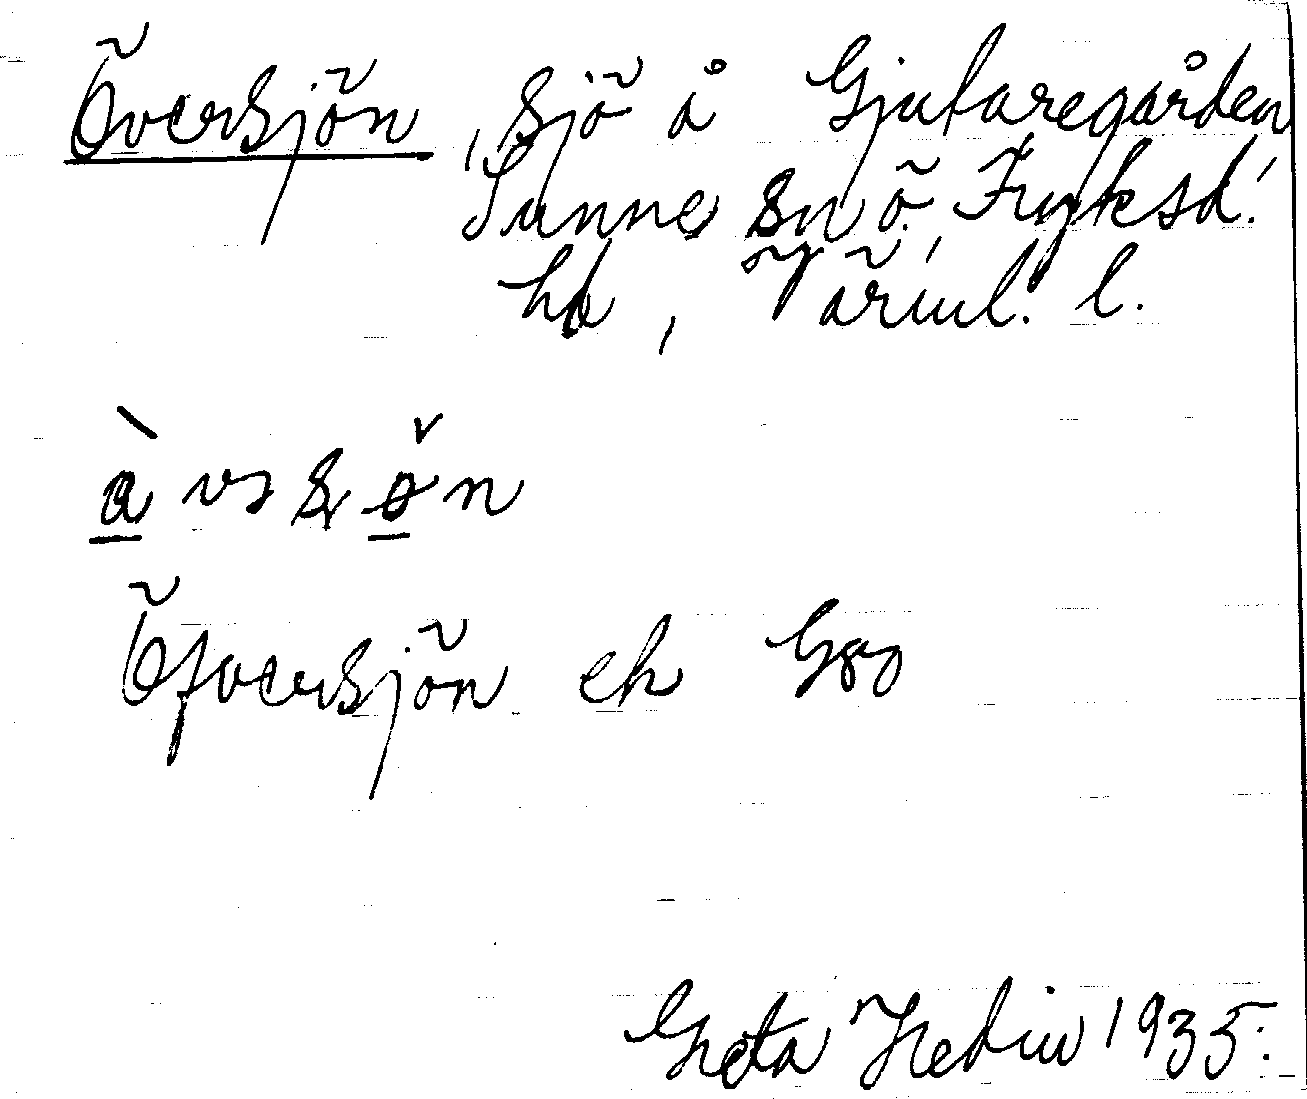 Översjön, sjö å Gjutaregården,
Sunne sn Ö. Fryksd.
hd, Värml. l.
àvsşøn
Öfversjön ek G80
Greta Hedin 1935.